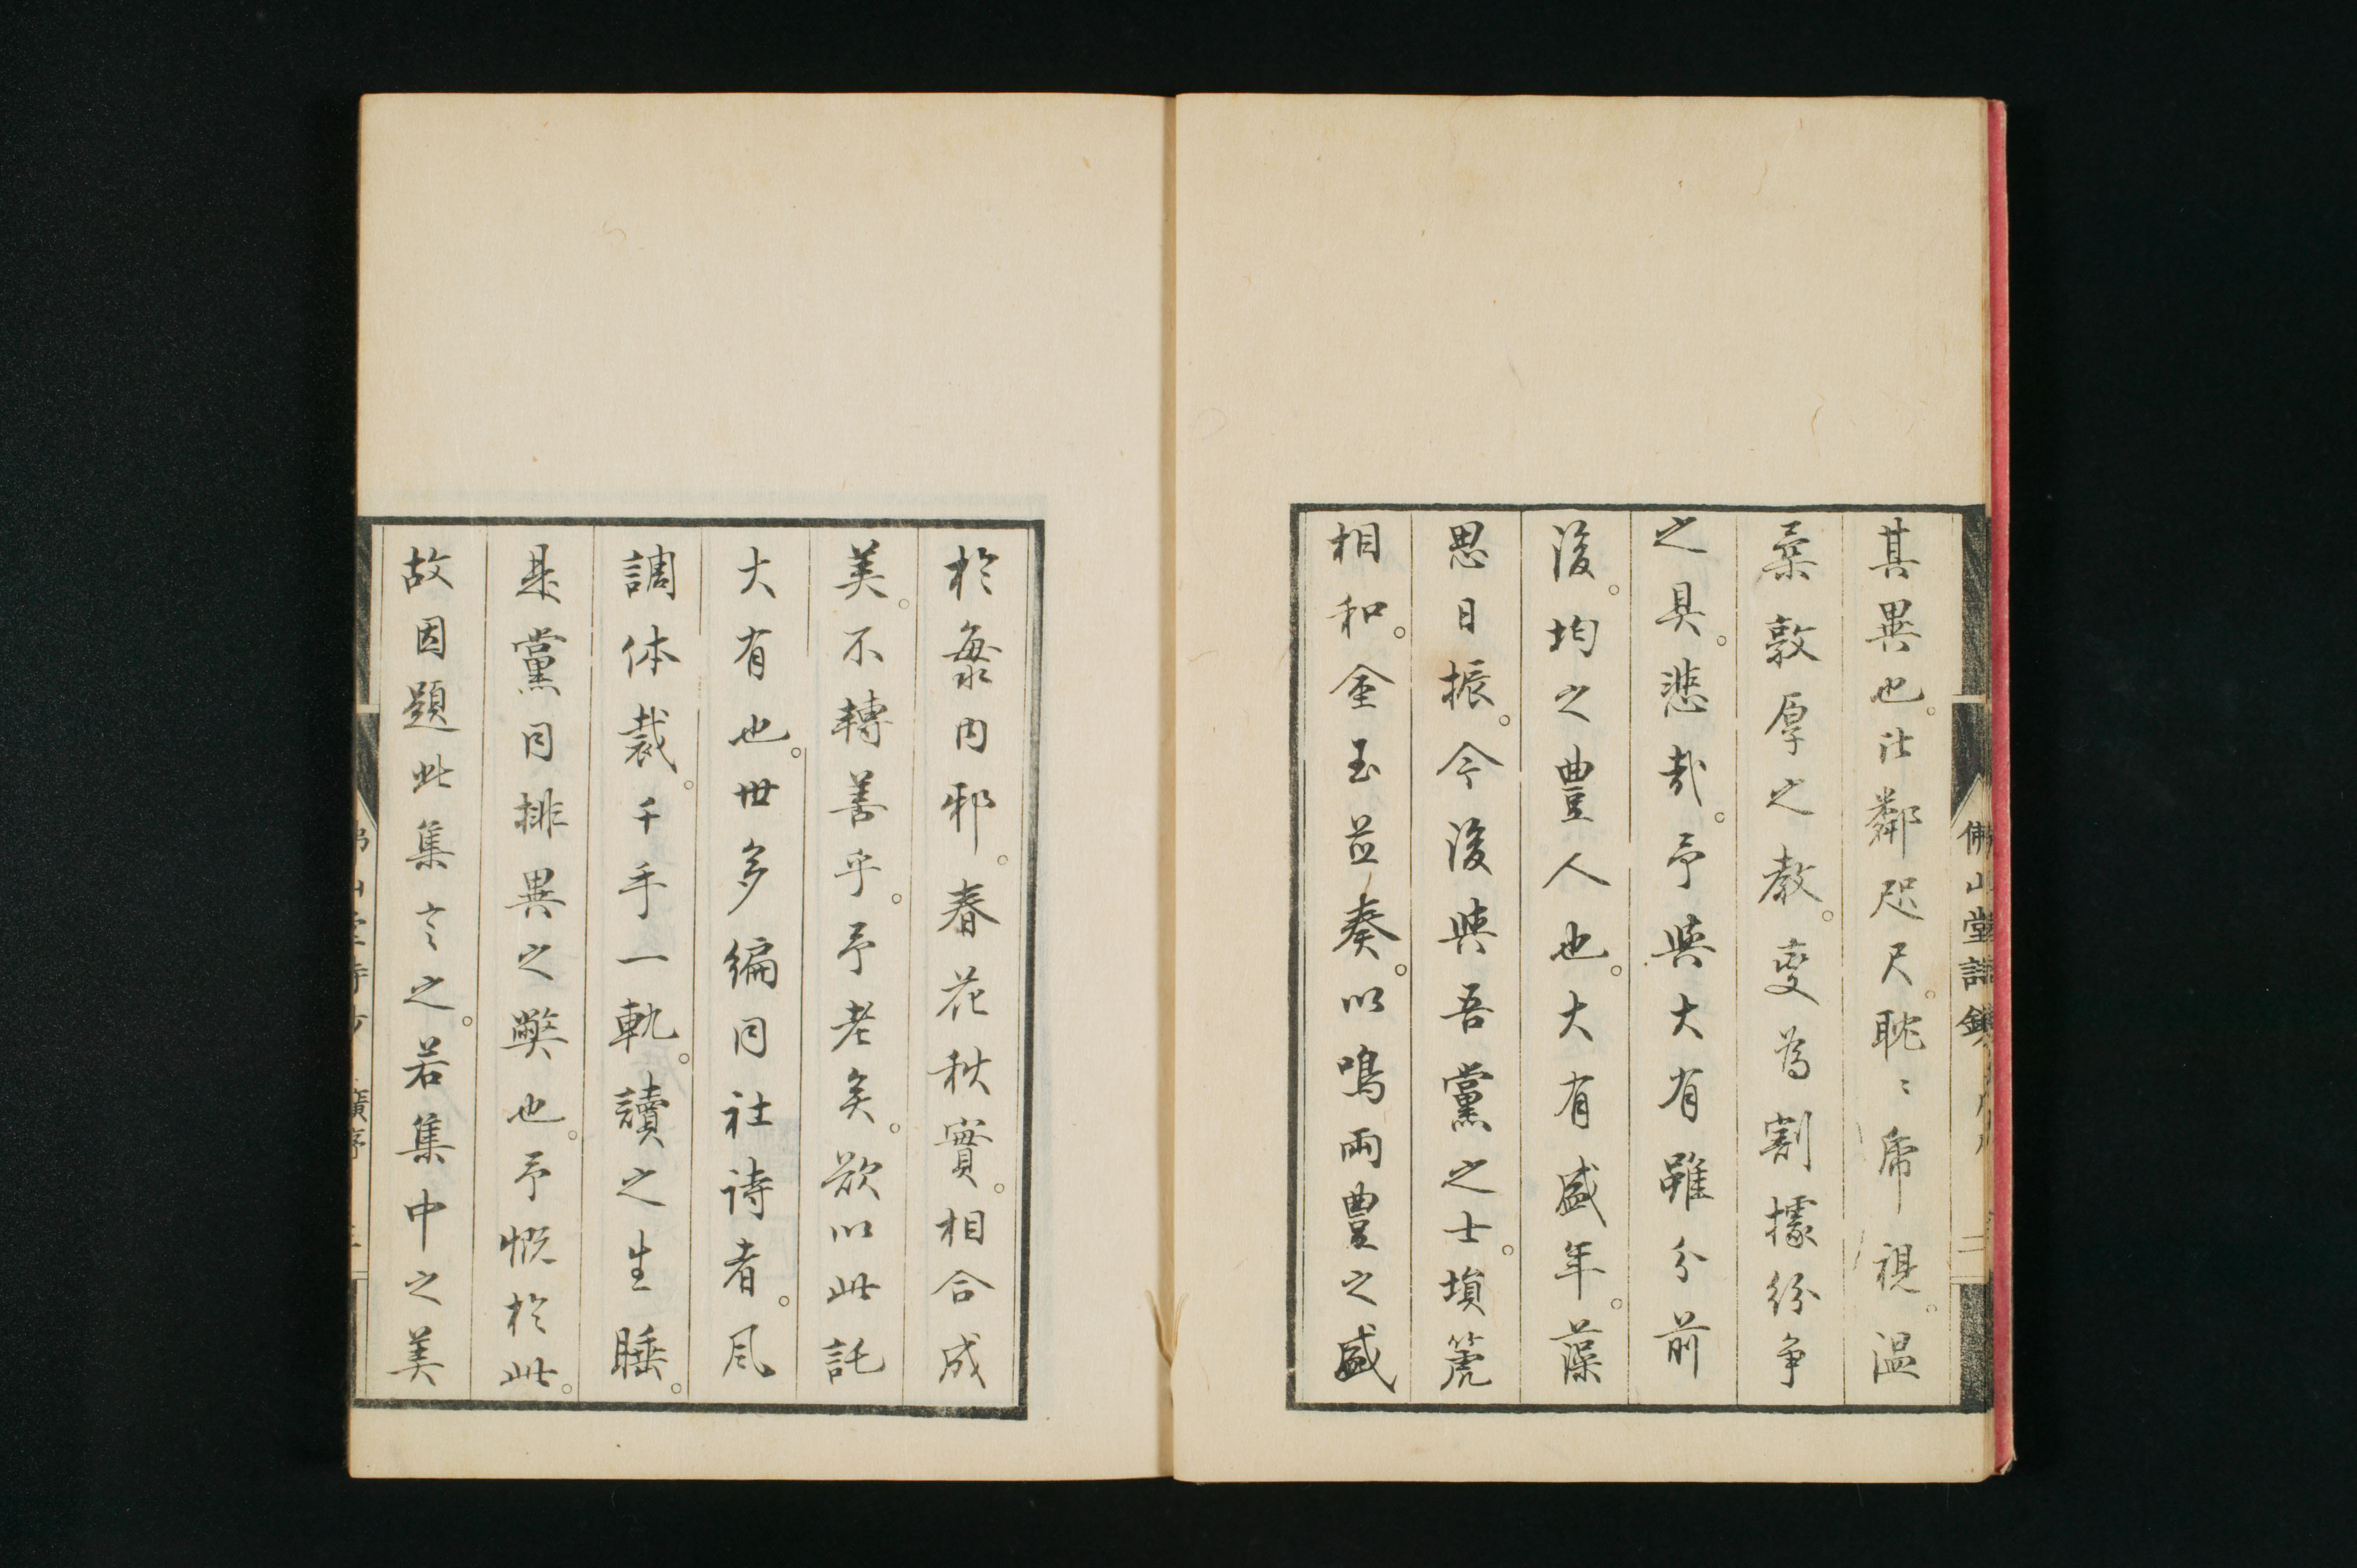 其異也。比鄰咫尺。眈〻席視。温
柔敦厚之教。変為割據紛争
之具。悲哉。予與大有雖分前
後。均之豊人也。大有盛年。藻
思日振。今後與吾黨之士。塤箎
相和。金玉並奏。以鳴兩豊之盛
佛山堂詩鈔
二
於海内邪。春花秋實。相合成
美。不轉善乎。予老矣。欲以此託
大有也。世多編同社詩者。風
調体裁。千手一軌。讀之生睡。
是黨同排異之弊也。予慨於此。
故因題此集言之。若集中之美
廣序